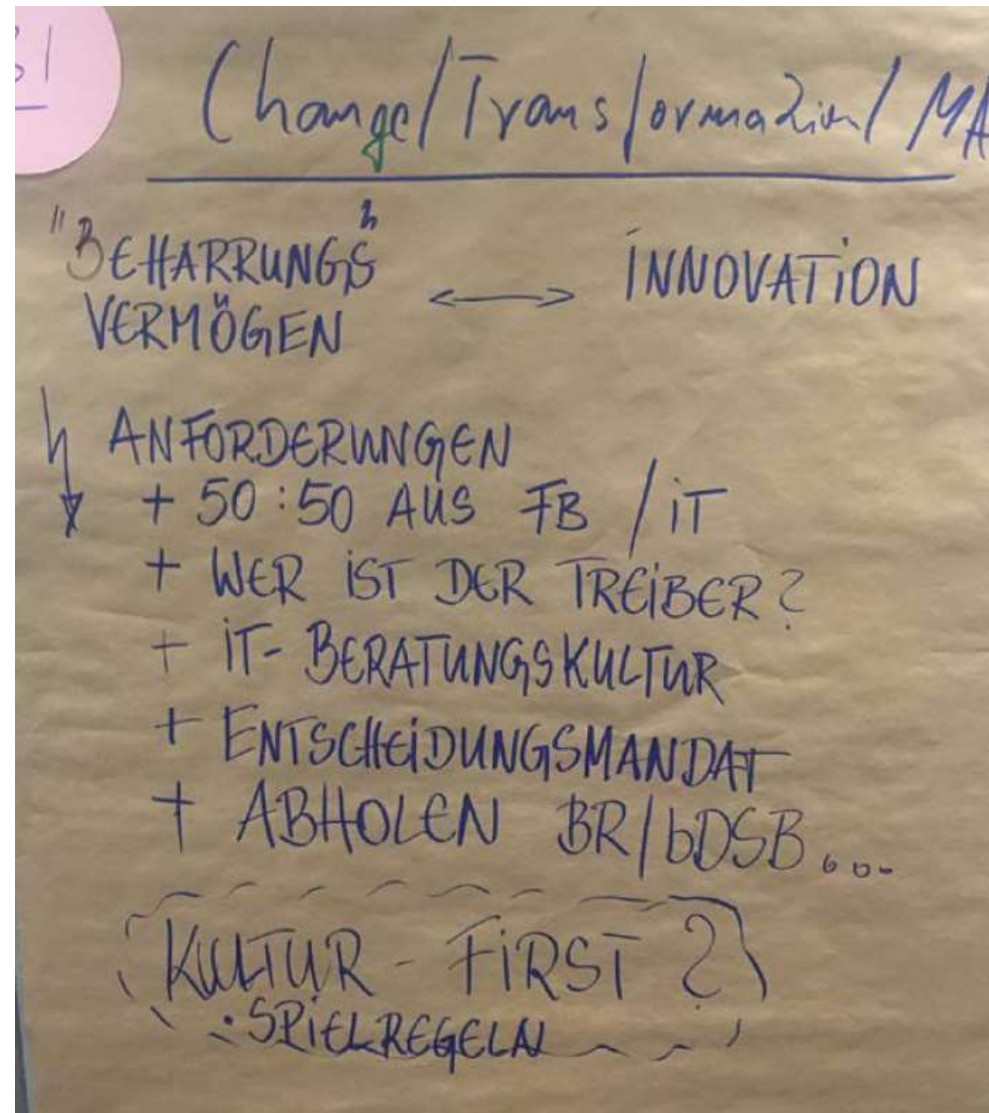 Change/Transformation/MA
"BEHARRUNGS"
VERMÖGEN ↔ INNOVATION
ANFORDERUNGEN
+ 50:50 AUS FB / iT
+ WER iST DER TREiBER?
+ iT-BERATUNGSKULTUR
+ ENTSCHEiDUNGSMANDAT
+ ABHOLEN BR/bDSB...
KULTUR - FiRST?
• SPiELREGELN